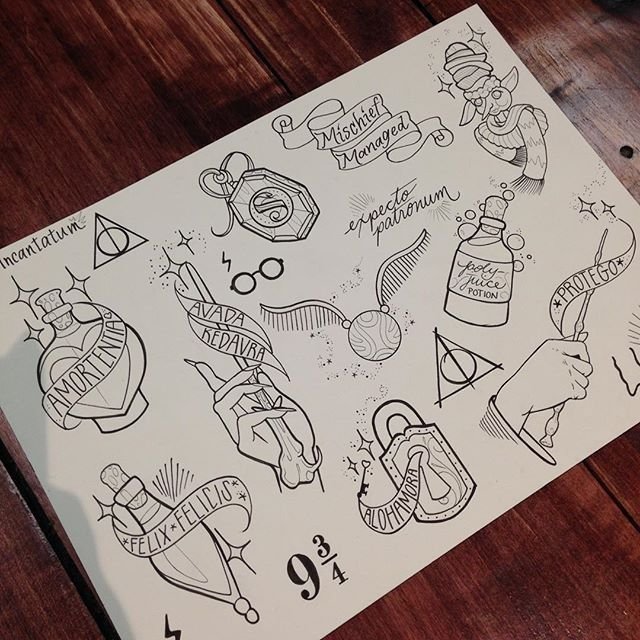 Mischief
Managed
expecto
patronum
Incantatum
AVADA
KEDAVRA
poly-
juice
POTION
PROTEGO
AMORTENTIA
ALOHAMORA
FELIX FELICIO
9 3/4